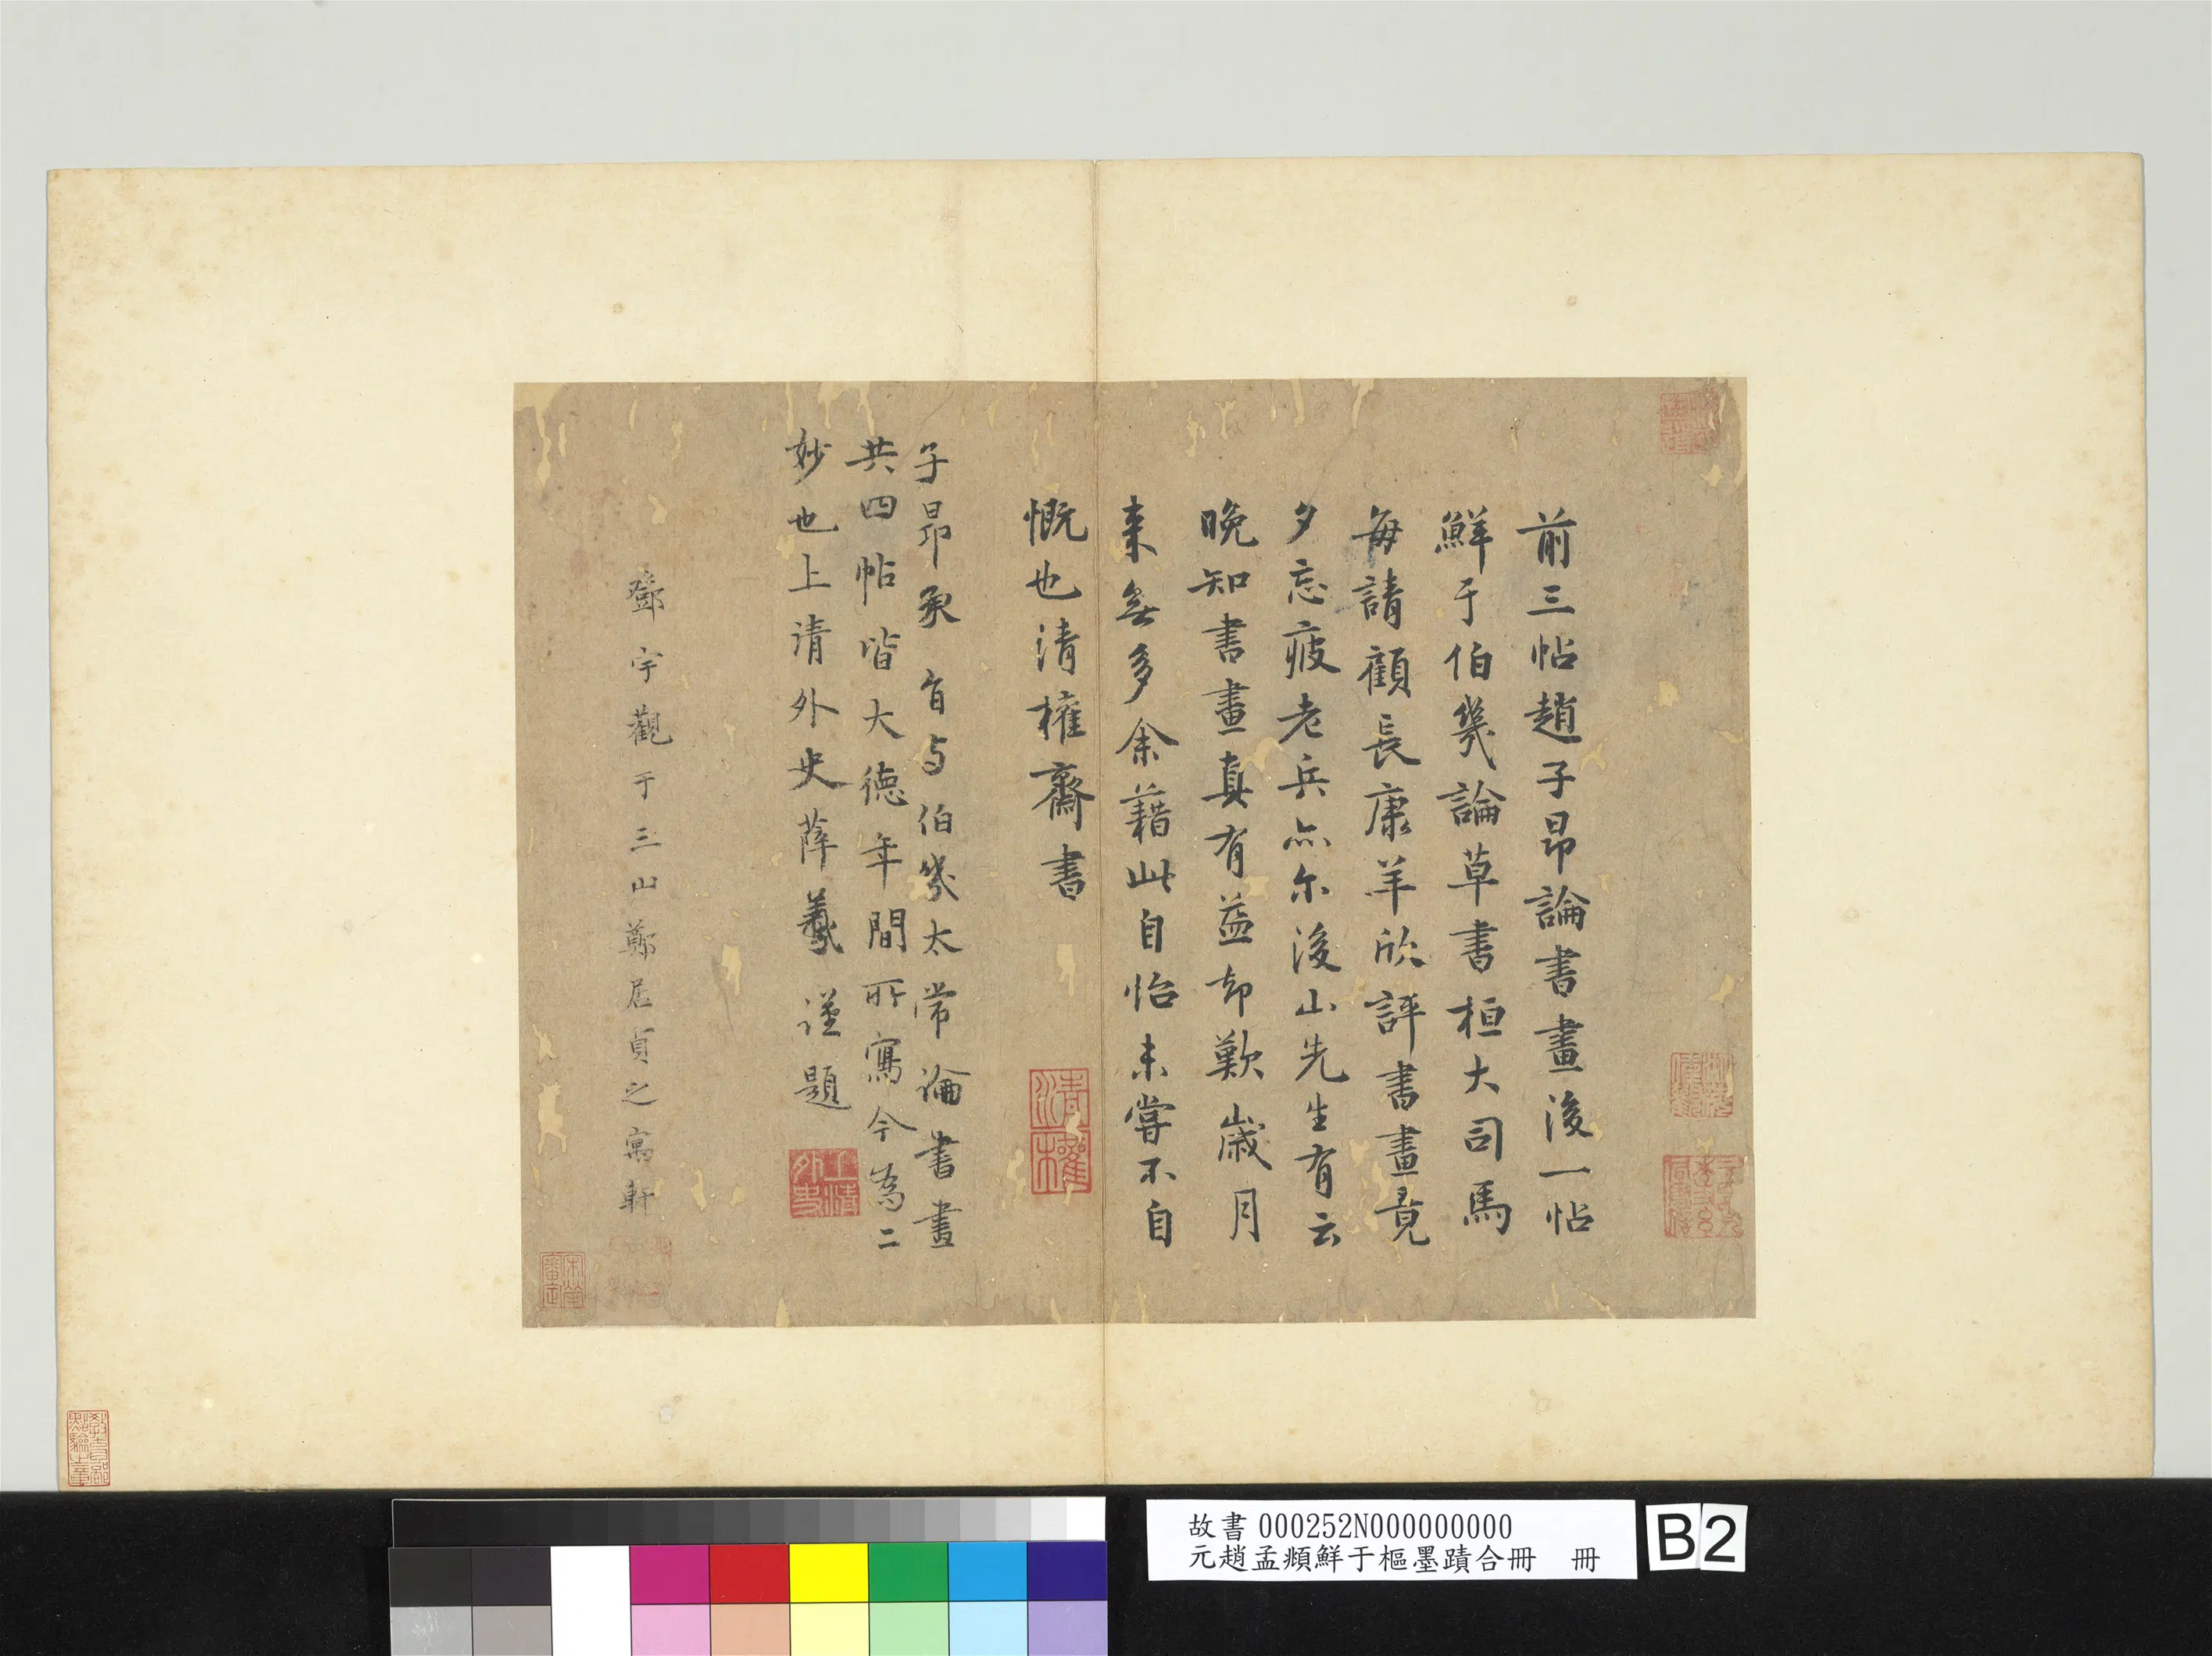 前三帖趙子昂論書畫後一帖
鮮于伯幾論草書桓大司馬
每請顧長康羊欣評書畫竟
夕忘疲老兵亦尔後山先生有云
晚知書畫真有益却歎歲月
来無多余藉此自怡未嘗不自
慨也清權齋書
清權
子昂承旨与伯幾太常論書畫
共四帖皆大德年間所寫今為二
妙也上清外史薛羲謹題
上清外史
鄧宇觀于三山鄭居貞之寓軒
宋犖審定
教育部點驗之章
故書 000252N000000000
元趙孟頫鮮于樞墨蹟合冊 冊
B2